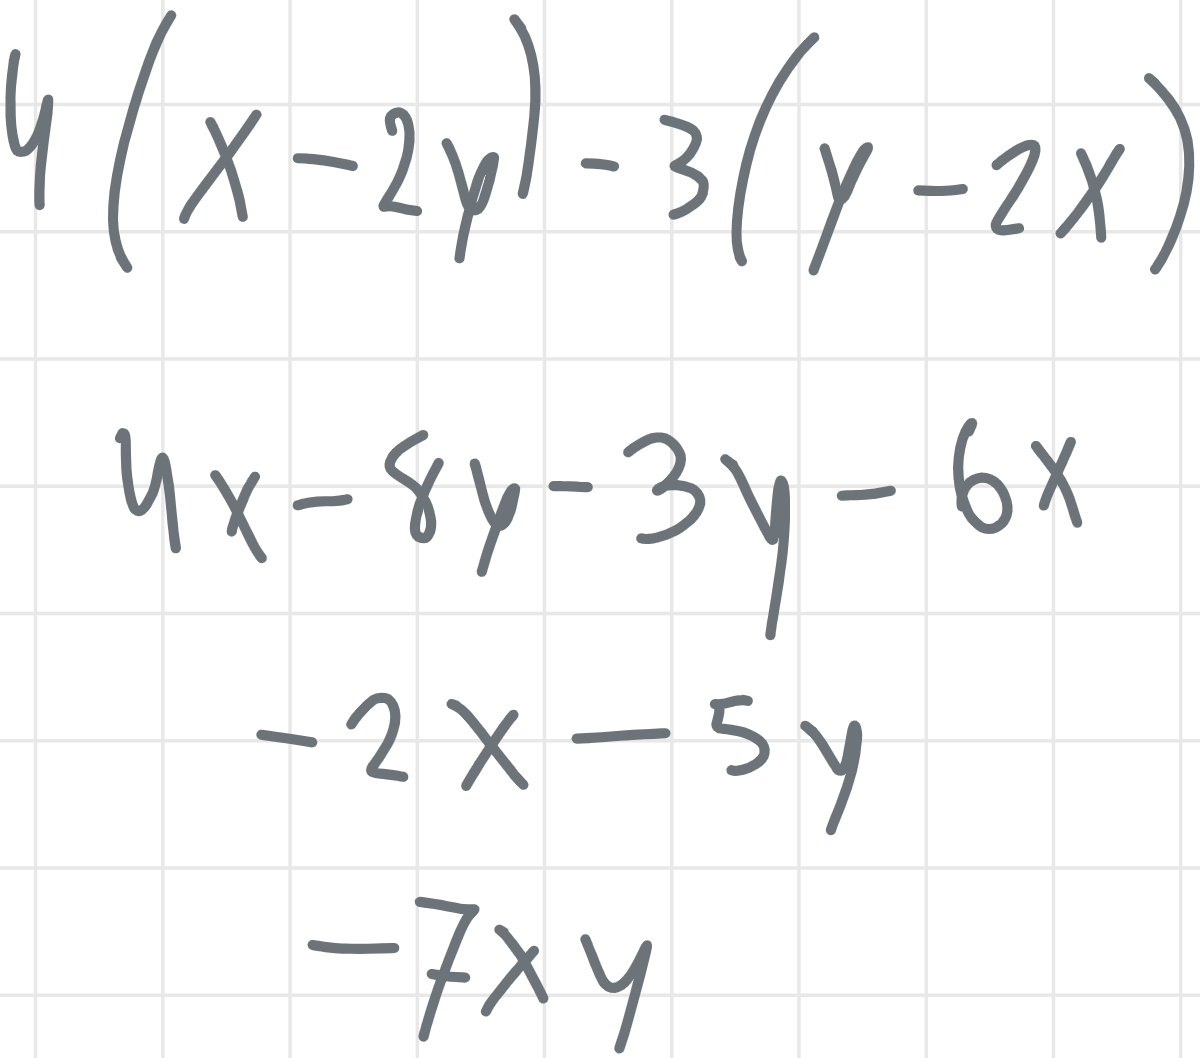 4(x-2y)-3(y-2x)
4x-8y-3y-6x
-2x-5y
-7xy